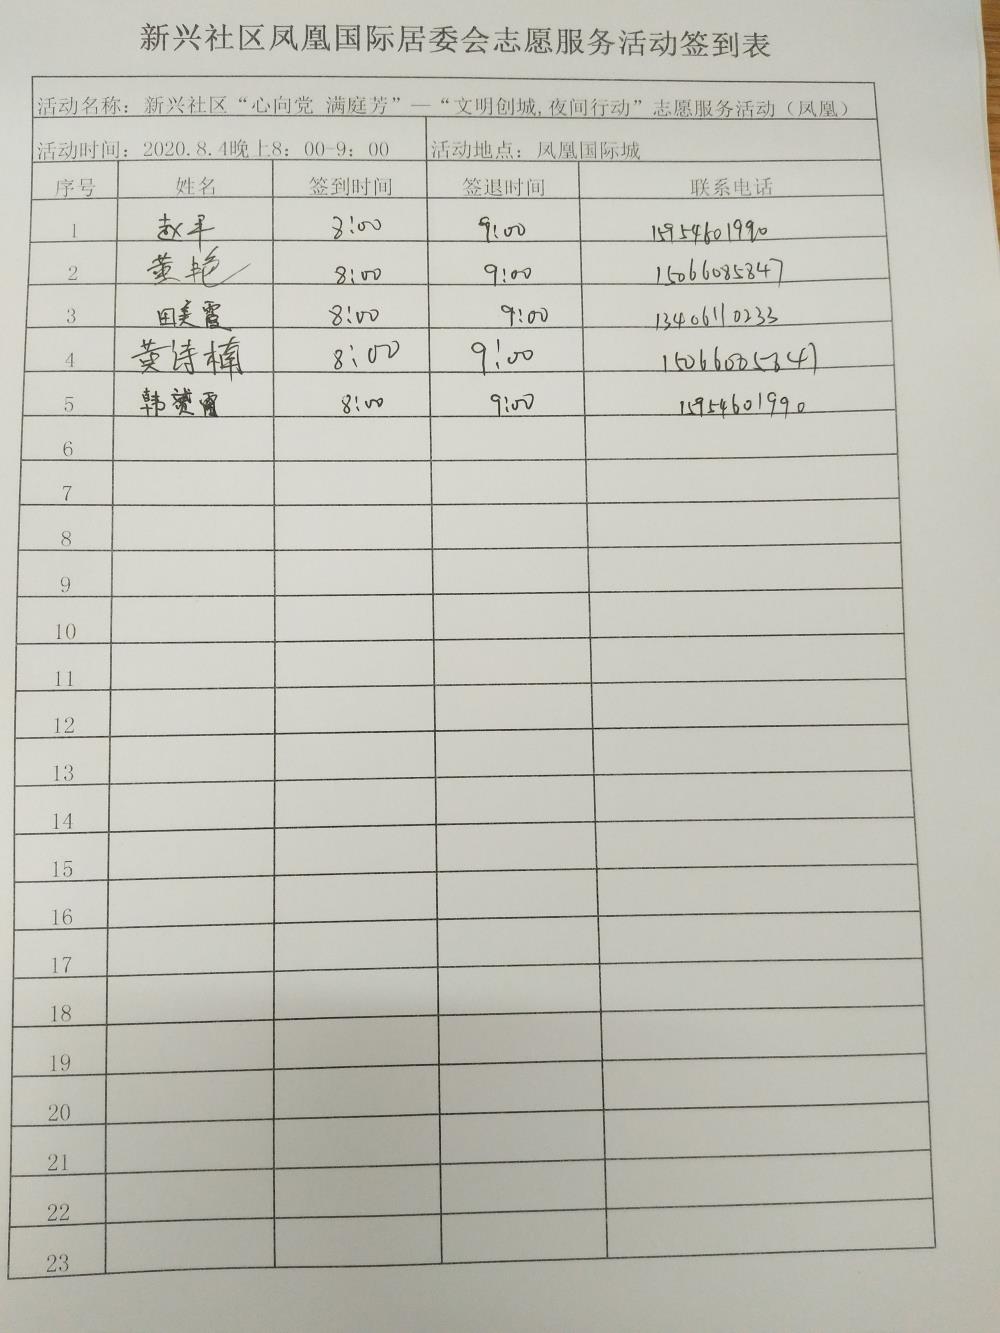 新兴社区凤凰国际居委会志愿服务活动签到表
活动名称：新兴社区“心向党 满庭芳”—“文明创城,夜间行动”志愿服务活动（凤凰）
活动时间：2020.8.4晚上8：00-9：00 活动地点：凤凰国际城
序号 姓名 签到时间 签退时间 联系电话
1 赵军 8:00 9:00 15954601990
2 黄艳 8:00 9:00 15066085847
3 田美霞 8:00 9:00 13406110233
4 黄诗楠 8:00 9:00
5 韩赟霄 8:00 9:00 15954601990
6
7
8
9
10
11
12
13
14
15
16
17
18
19
20
21
22
23